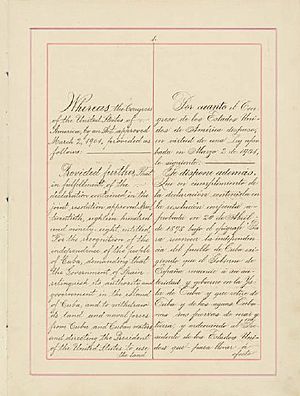 1.
Whereas the Congress
of the United States of
America, by an Act approved
March 2, 1901, provided as
follows:
Provided further, That
in fulfillment of the
declaration contained in the
joint resolution approved April
twentieth, eighteen hundred
and ninety-eight, entitled,
"For the recognition of the
independence of the people
of Cuba, demanding that
the Government of Spain
relinquish its authority and
government in the island
of Cuba, and to withdraw
its land and naval forces
from Cuba and Cuban waters,
and directing the President
of the United States to use
the land
Por cuanto el Con-
greso de los Estados Uni-
dos de América dispuso,
en virtud de una Ley apro-
bada en Marzo 2 de 1901,
lo siguiente:
Se dispone además,
Que en cumplimiento de
la declaración contenida en
la resolución conjunta a-
probada en 20 de Abril
de 1898 bajo el epígrafe "Pa-
ra reconocer la independen-
cia del pueblo de Cuba exi-
giendo que el Gobierno de
España renuncie a su au-
toridad y gobierno en la Is-
la de Cuba y que retire de
Cuba y de las aguas Cuba-
nas sus fuerzas de mar y
tierra, y ordenando al Pre-
sidente de los Estados Uni-
dos que para llevar á
efecto